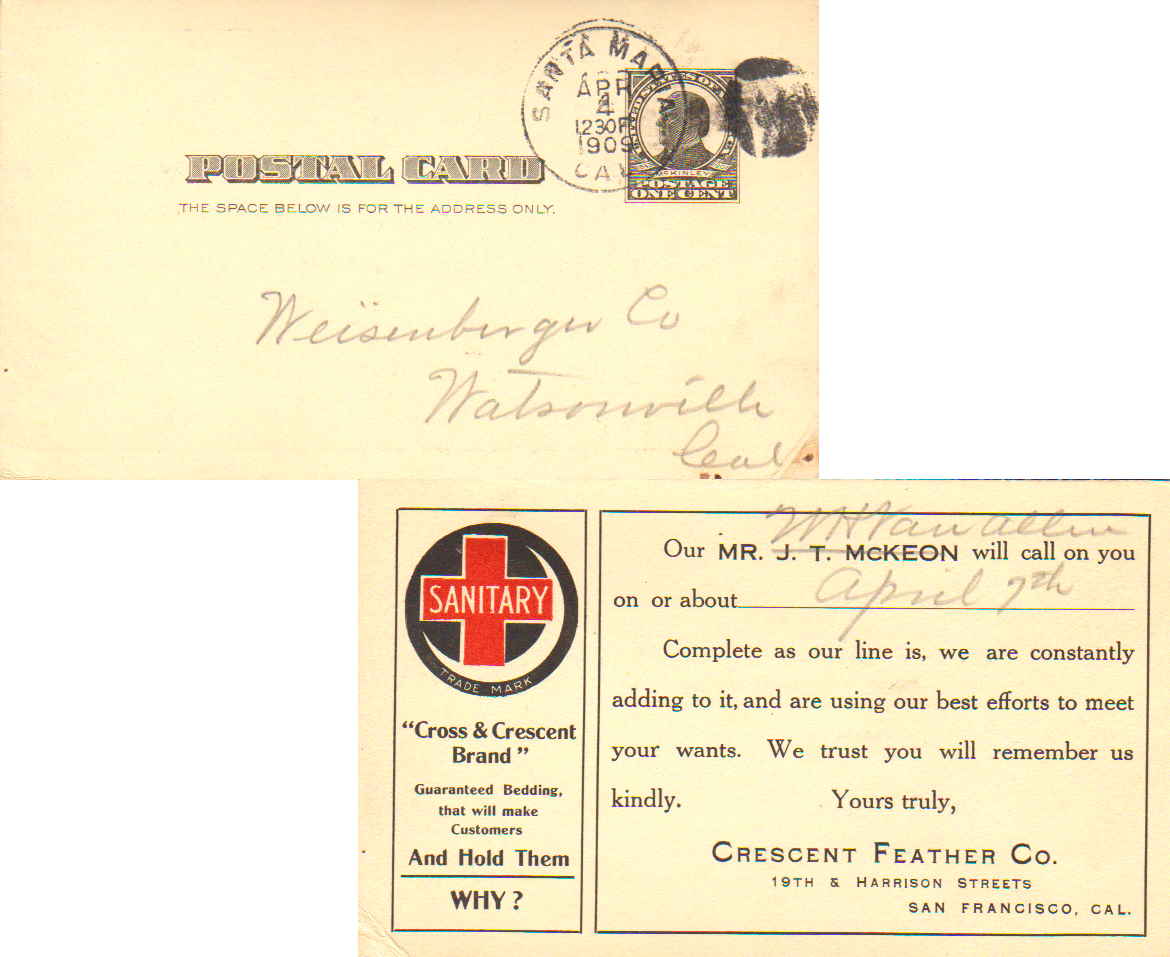 SANTA MARIA
APR
4
1230P
1909
CAL
McKINLEY
POSTAGE
ONE CENT
POSTAL CARD
THE SPACE BELOW IS FOR THE ADDRESS ONLY.
Weisenberger Co
Watsonville
Cal
SANITARY
TRADE MARK
"Cross & Crescent
Brand"
Guaranteed Bedding,
that will make
Customers
And Hold Them
WHY?
W H Van Allen
Our MR. J. T. McKEON will call on you
on or about April 7th
Complete as our line is, we are constantly
adding to it, and are using our best efforts to meet
your wants. We trust you will remember us
kindly. Yours truly,
CRESCENT FEATHER CO.
19TH & HARRISON STREETS
SAN FRANCISCO, CAL.